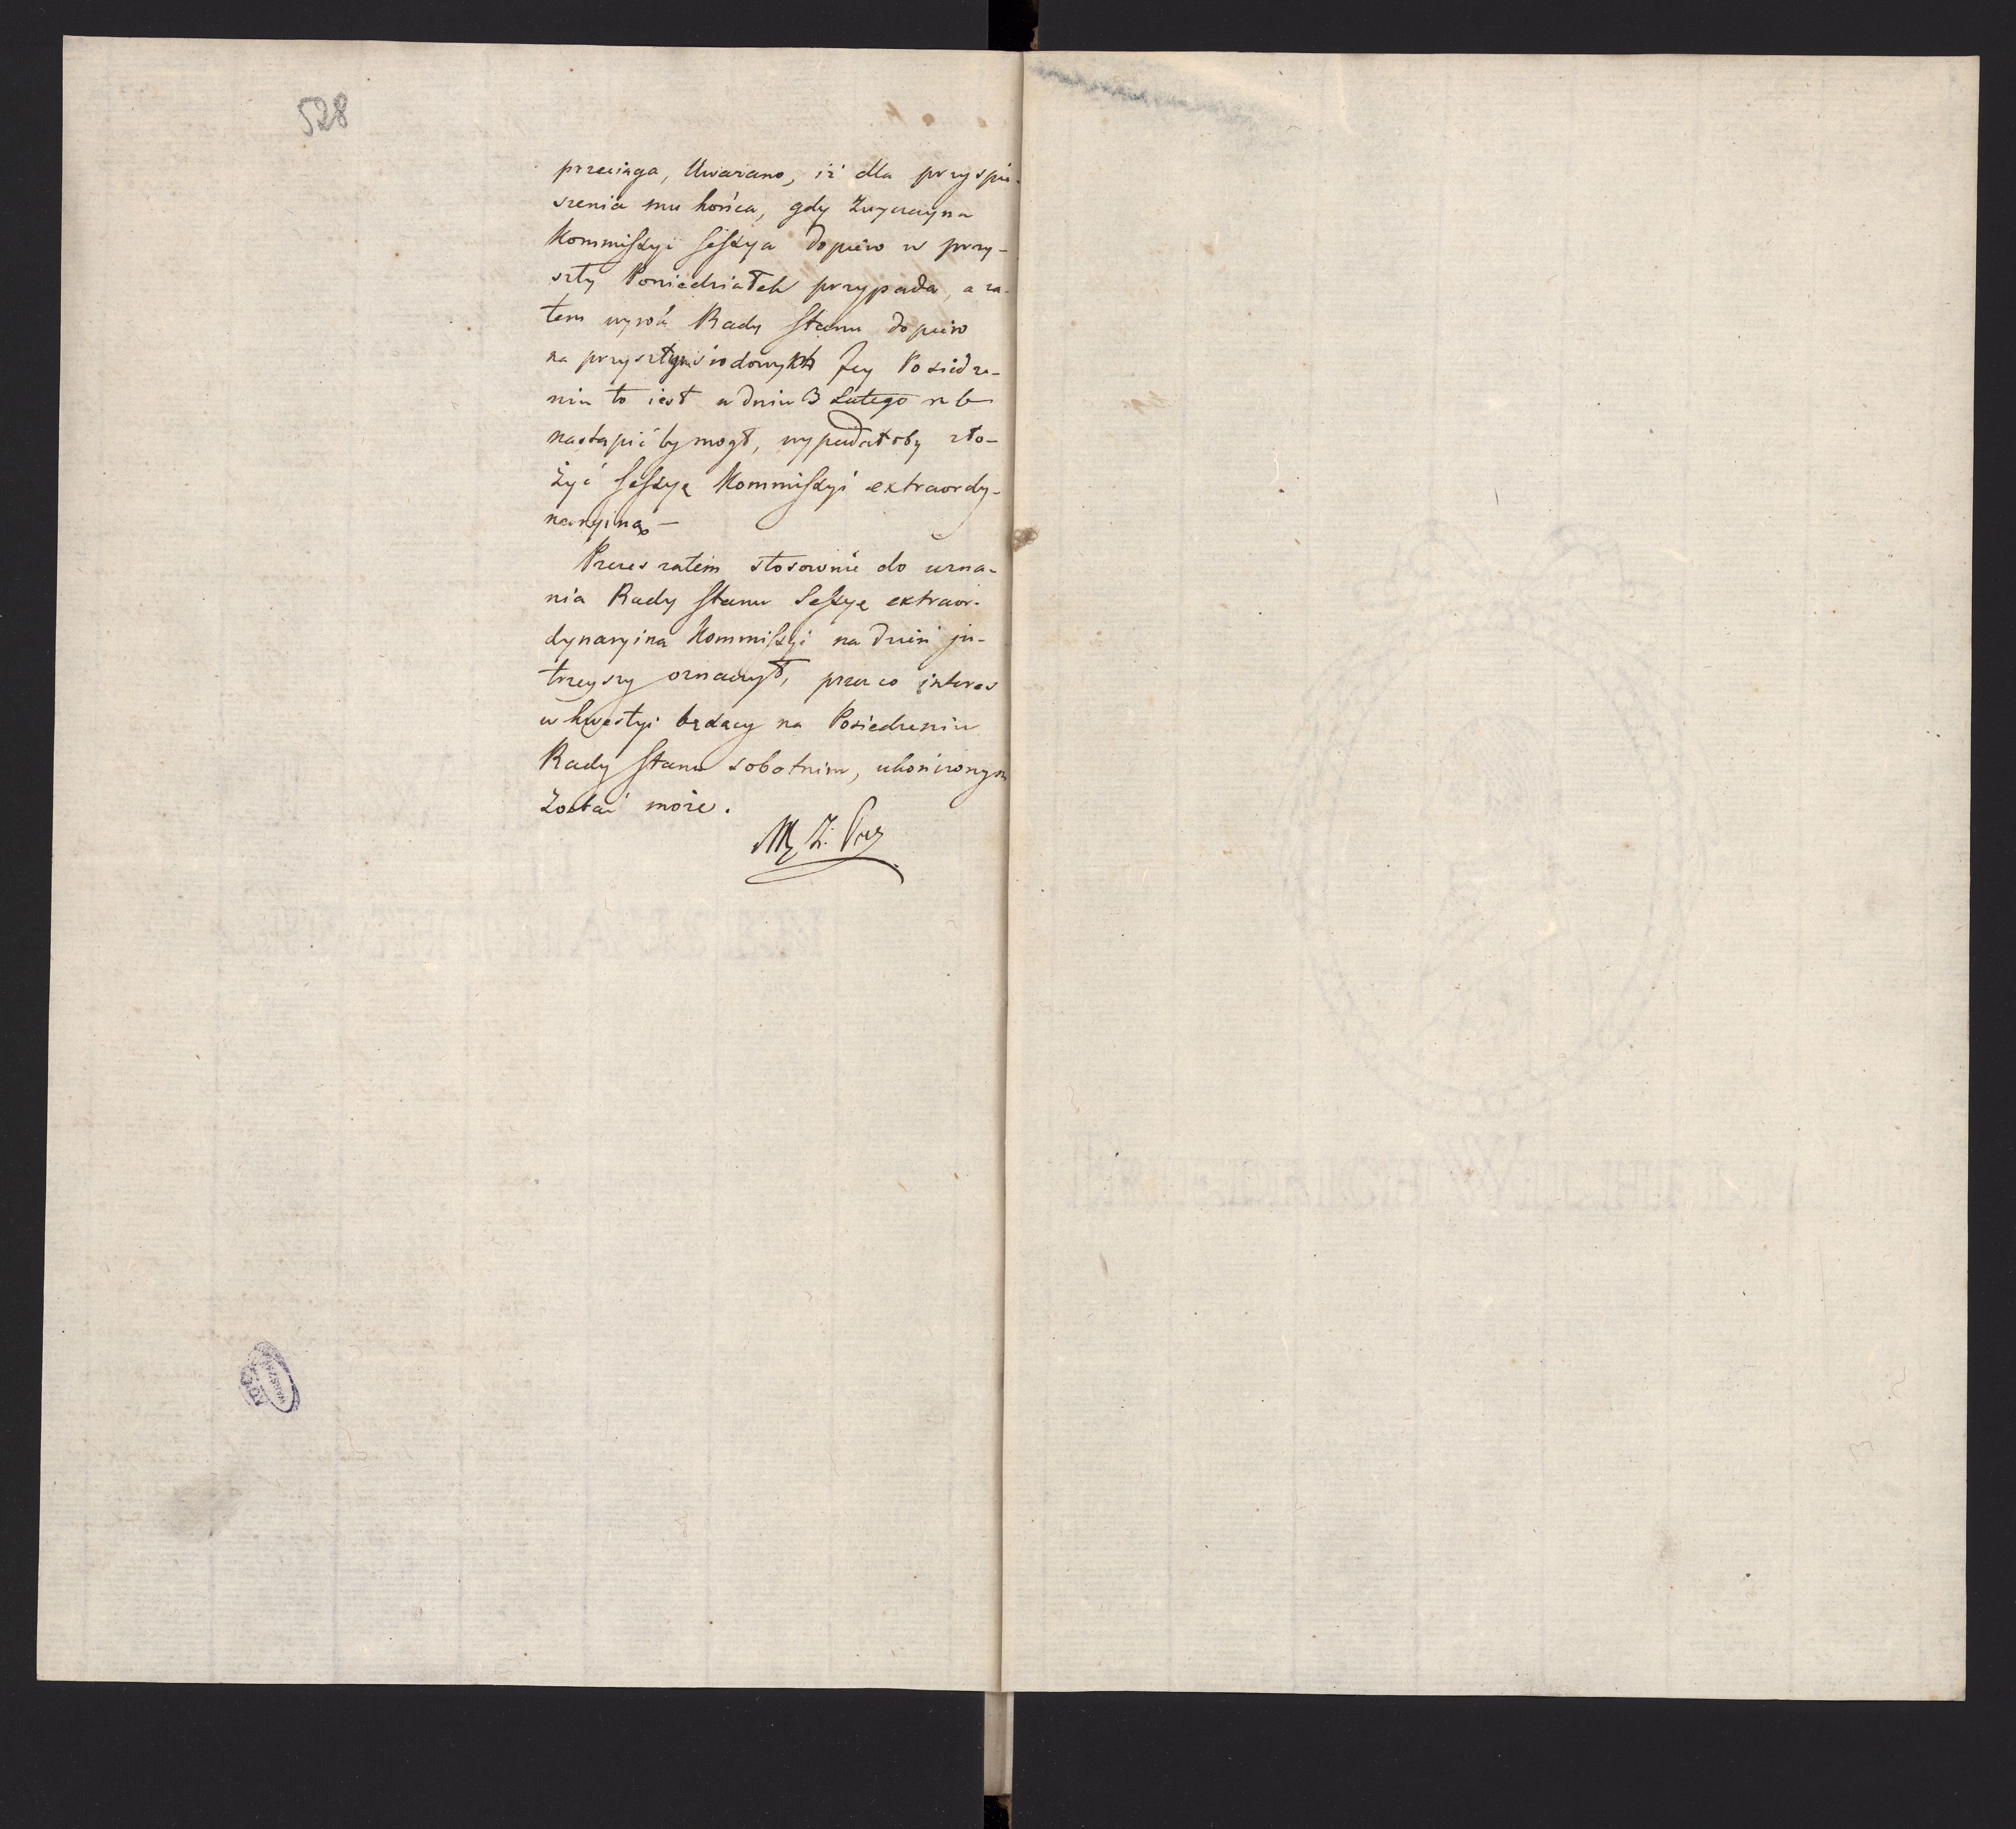 528
przeciąga, Uważano, iż dla przyspie-
szenia mu końca, gdy Zwyczayna
Kommissyi Sessya dopiero w przy-
szły Poniedziałek przypada, a za-
tem wyrok Rady Stanu dopiero
na przyszłym środowym Jey Posiedze-
niu to iest w dniu 3 Lutego r b
nastąpić by mogł, wypadałoby zło-
żyć Sessyę Kommissyi extraordy-
naryiną —
Prezes zatem stosownie do uzna-
nia Rady Stanu Sessyę extraor-
dynaryiną Kommissyi na dzień ju-
trzeyszy oznaczył, przez co interes
w kwestyi będący na Posiedzeniu
Rady Stanu sobotnim, ukończonym
Zostać może.